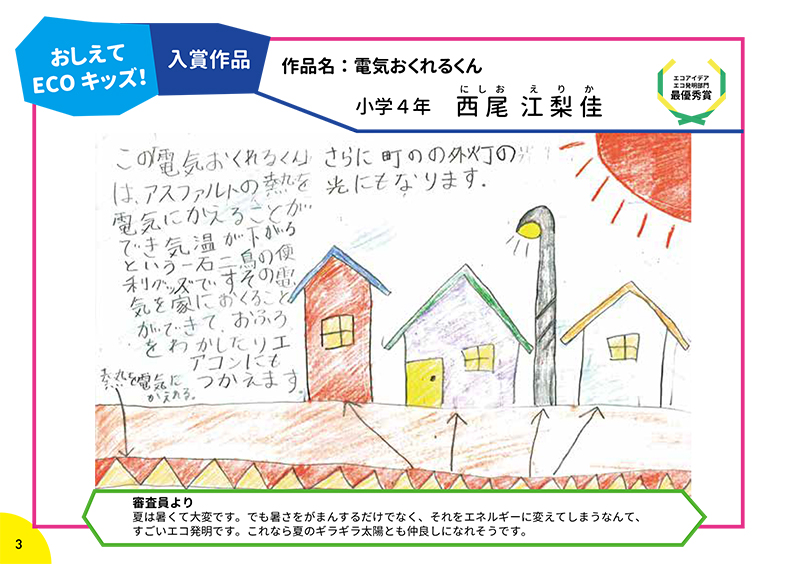 おしえて
ECO キッズ！
入賞作品
作品名：電気おくれるくん
小学４年
にしお えりか
西尾 江梨佳
エコアイデア
エコ発明部門
最優秀賞
この「電気おくれるくん」
は、アスファルトの熱を
電気にかえることが
でき気温が下がる
という一石二鳥の便
利グッズで、すその電
気を家におくること
ができて、おふろ
をわかしたりエ
アコンにも
つかえます。
さらに町のの外灯の
光にもなります.
熱を電気に
かえれる。
審査員より
夏は暑くて大変です。でも暑さをがまんするだけでなく、それをエネルギーに変えてしまうなんて、
すごいエコ発明です。これなら夏のギラギラ太陽とも仲良しになれそうです。
3